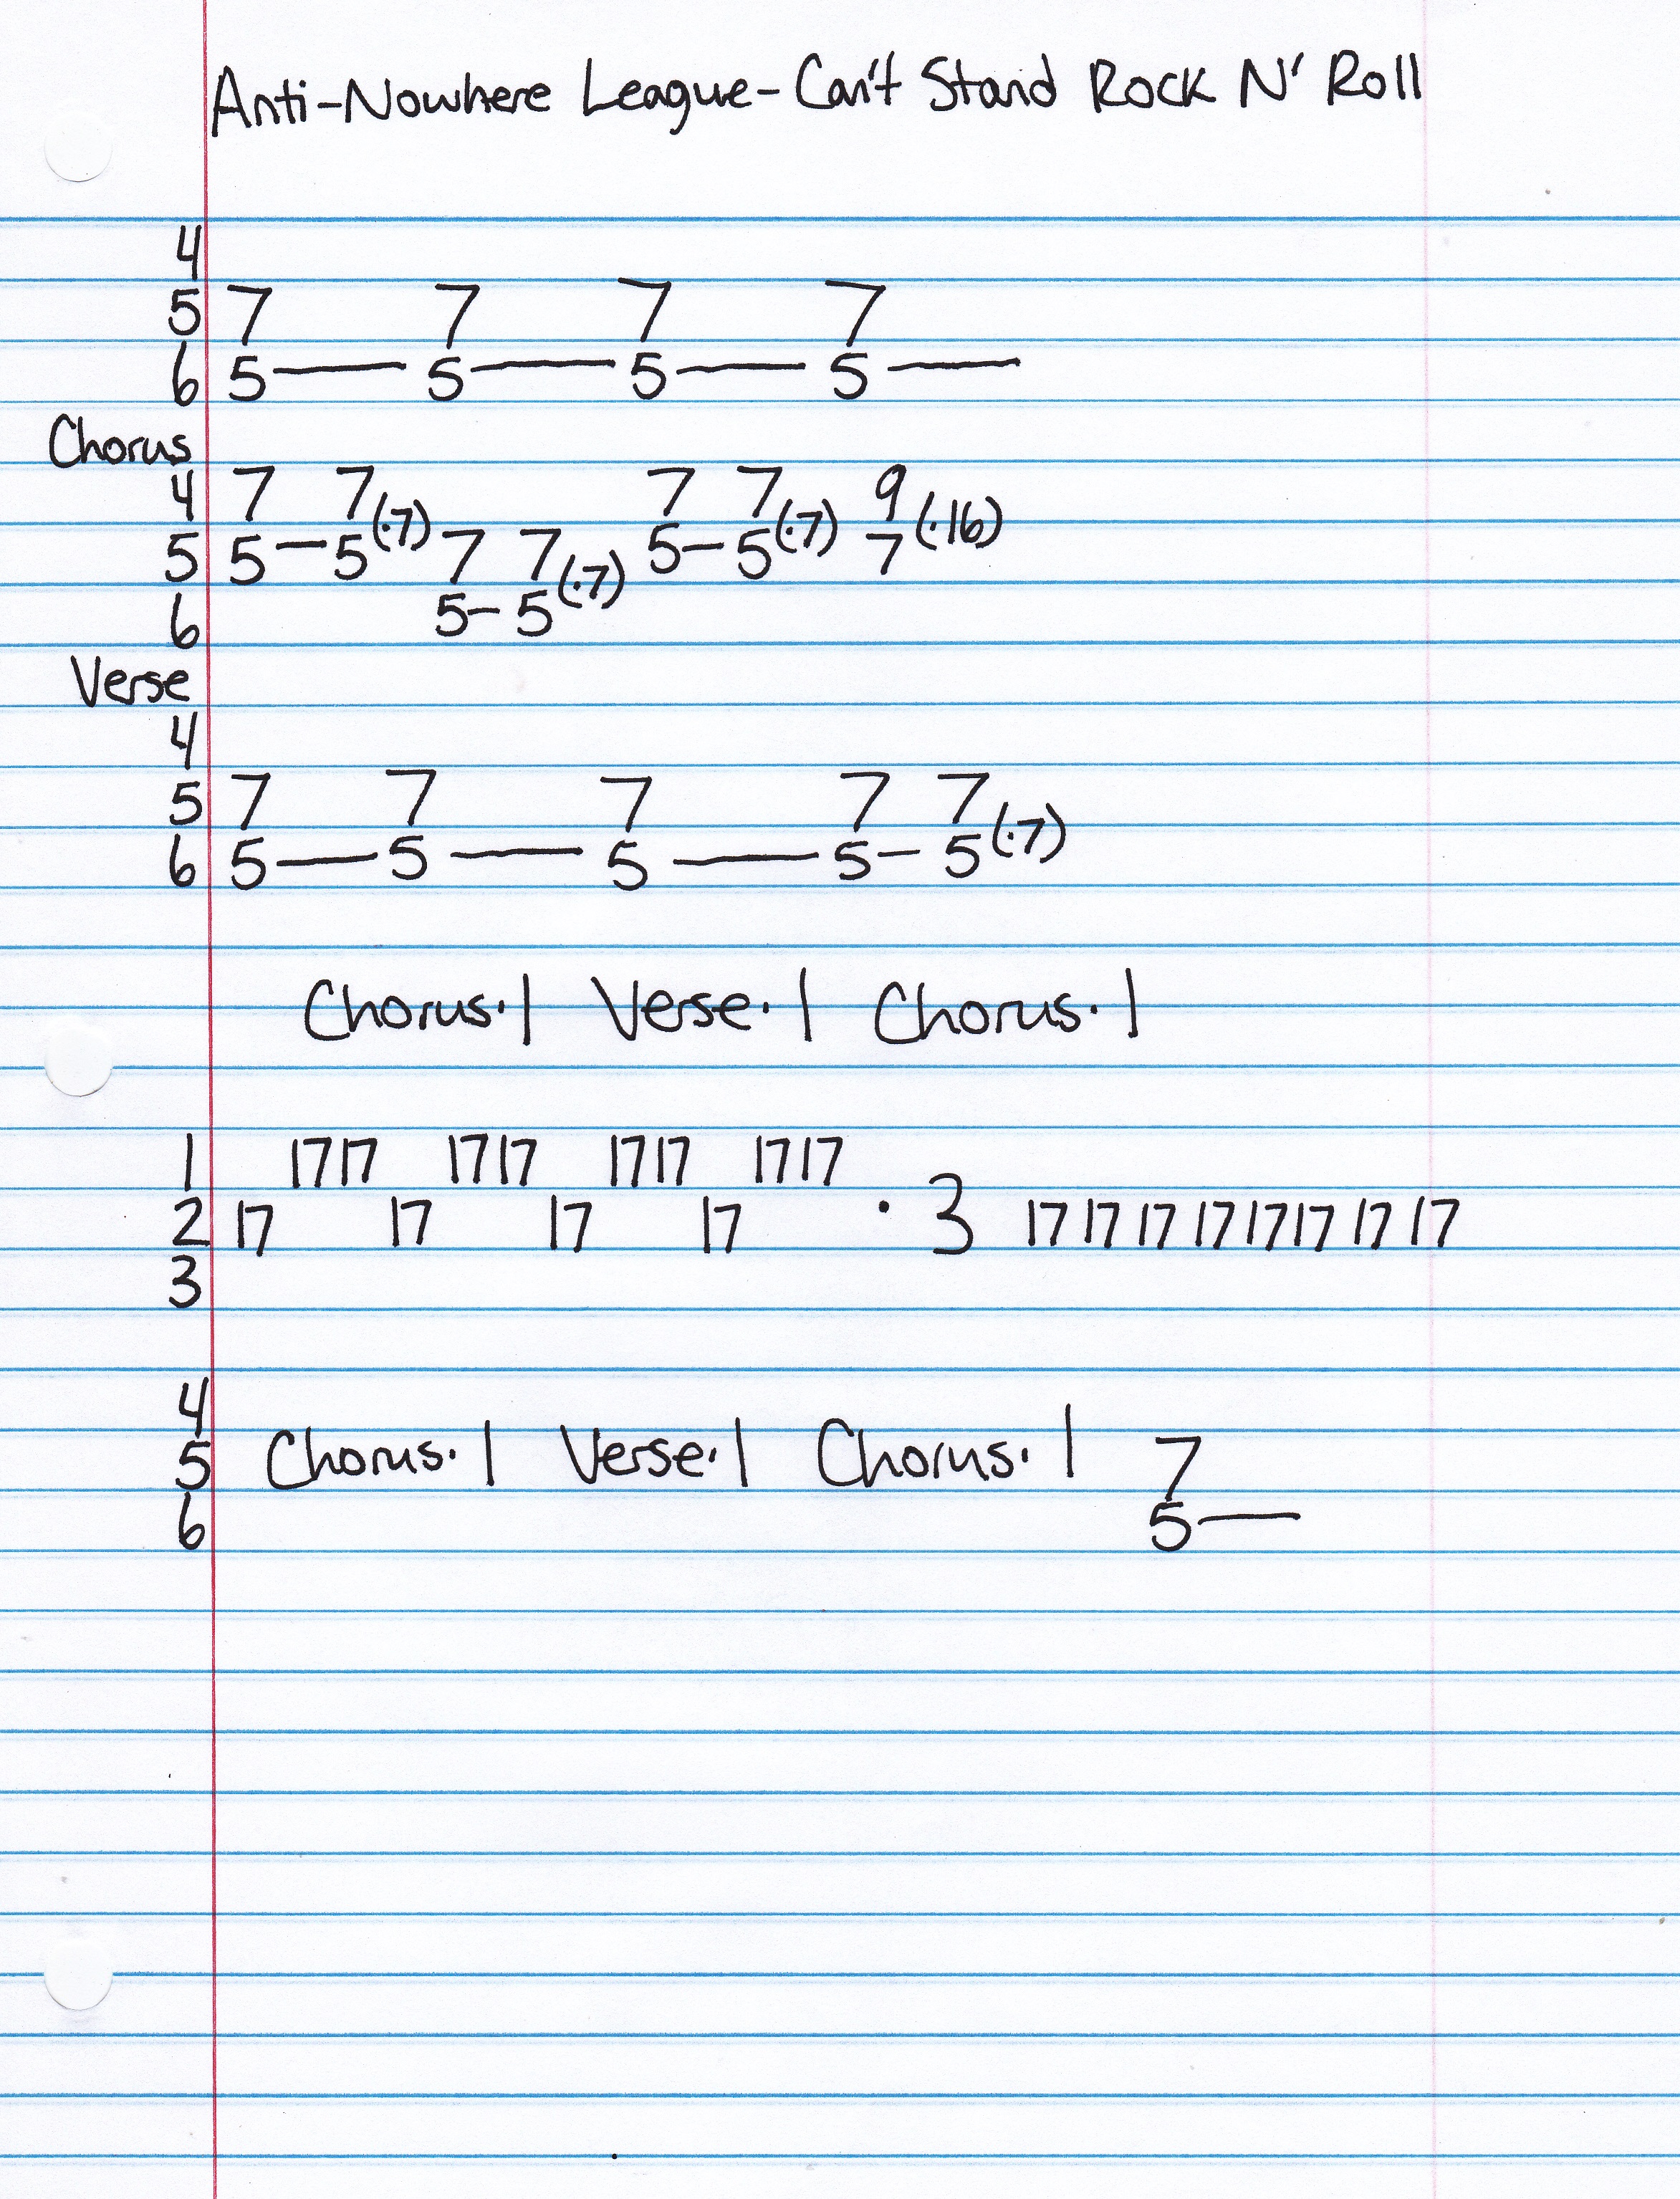 Anti-Nowhere League - Can't Stand Rock N' Roll
4
5 7 7 7 7
6 5 — 5 — 5 — 5 —
Chorus
4 7 7 7 7 9
5 5 — 5 (·7) 7 7 5 — 5 (·7) 7 (·16)
6 5 - 5 (·7)
Verse
4
5 7 7 7 7 7
6 5 — 5 — 5 — 5 - 5 (·7)
Chorus·1 Verse·1 Chorus·1
1 1717 1717 1717 1717
2 17 17 17 17 · 3 17 17 17 17 17 17 17 17
3
4
5 Chorus·1 Verse·1 Chorus·1 7
6 5 —